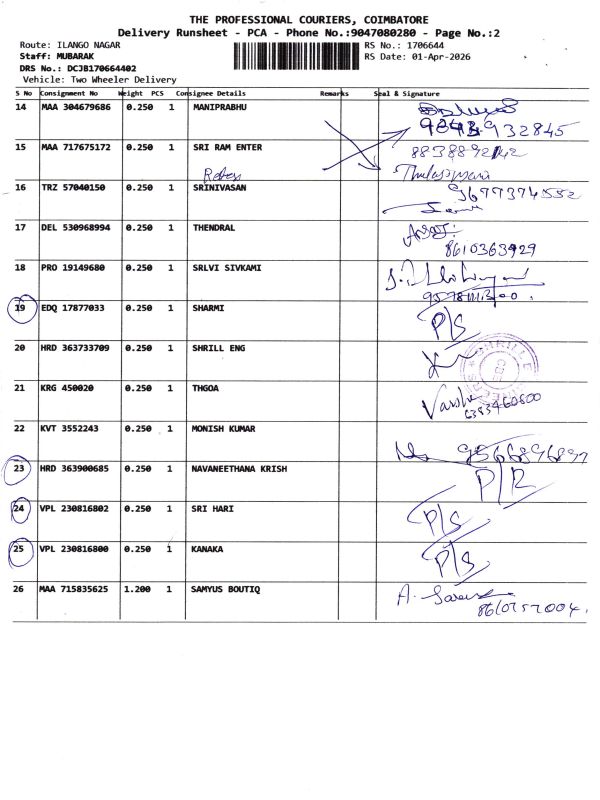 THE PROFESSIONAL COURIERS, COIMBATORE
Delivery Runsheet - PCA - Phone No.:9047080280 - Page No.:2
Route: ILANGO NAGAR RS No.: 1706644
Staff: MUBARAK RS Date: 01-Apr-2026
DRS No.: DCJB170664402
Vehicle: Two Wheeler Delivery
S No Consignment No Weight PCS Consignee Details Remarks Seal & Signature
14 MAA 304679686 0.250 1 MANIPRABHU
932845
15 MAA 717675172 0.250 1 SRI RAM ENTER
16 TRZ 57040150 0.250 1 SRINIVASAN
9677374552
17 DEL 530968994 0.250 1 THENDRAL
8610363929
18 PRO 19149680 0.250 1 SRLVI SIVKAMI
19 EDQ 17877033 0.250 1 SHARMI P/S
20 HRD 363733709 0.250 1 SHRILL ENG
21 KRG 450020 0.250 1 THGOA
6383460800
22 KVT 3552243 0.250 1 MONISH KUMAR
9566896897
23 HRD 363900685 0.250 1 NAVANEETHANA KRISH P/R
24 VPL 230816802 0.250 1 SRI HARI P/S
25 VPL 230816800 0.250 1 KANAKA P/S
26 MAA 715835625 1.200 1 SAMYUS BOUTIQ